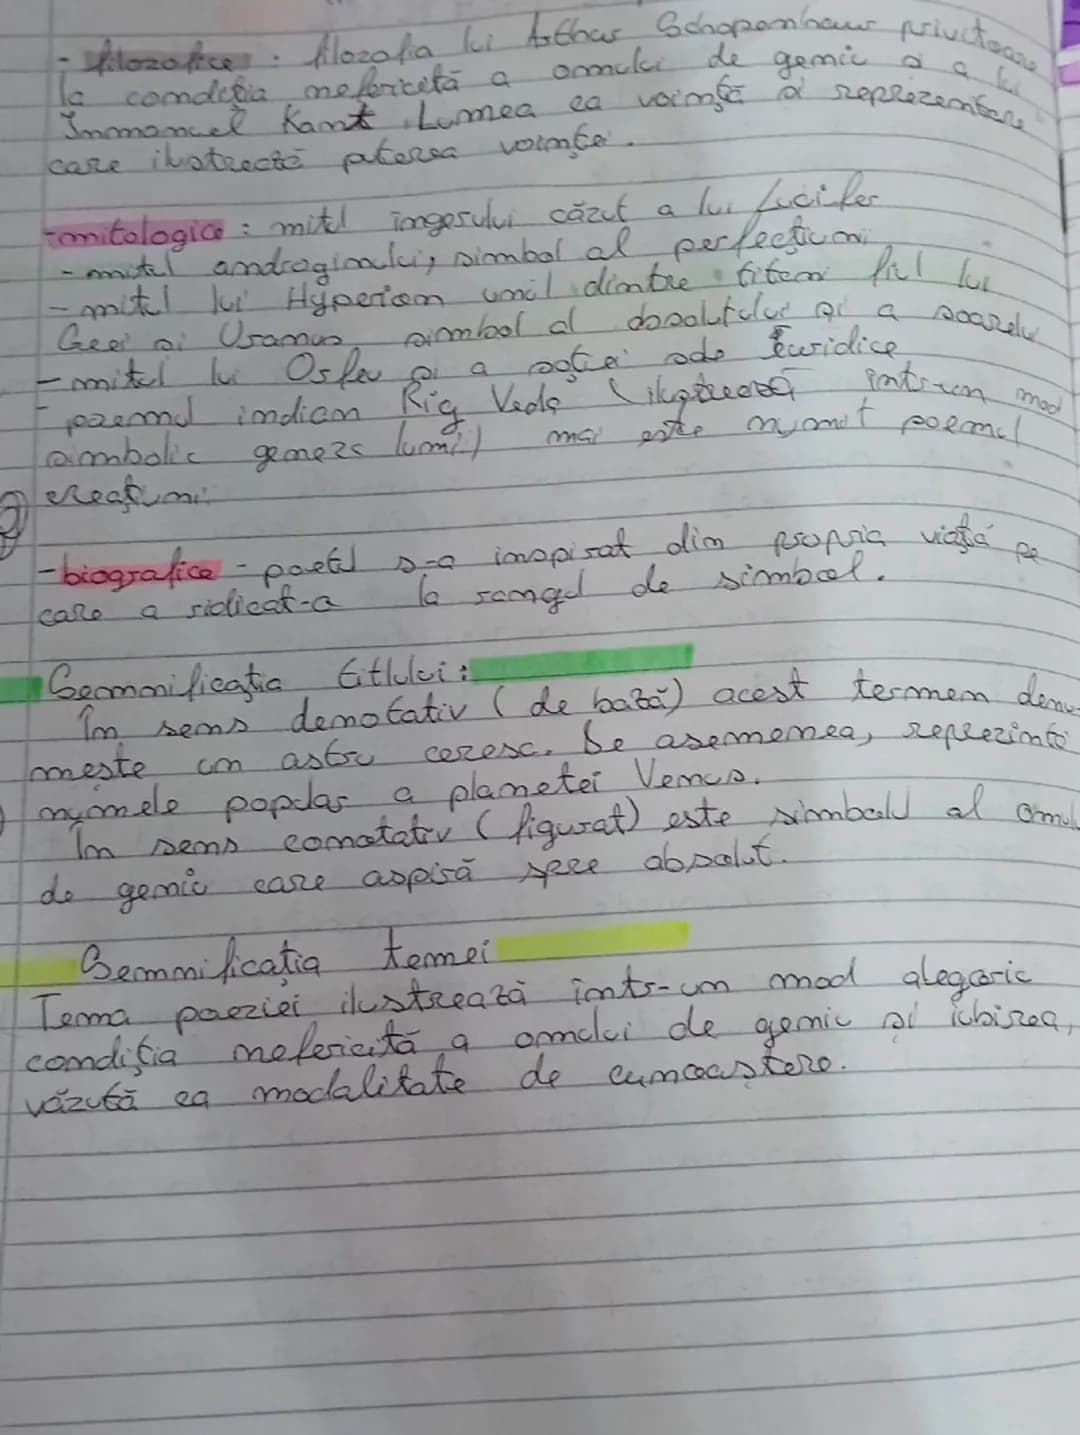 - filozofice : filozofia lui Arthur Schopenhauer privitoare
la condiția nefericită a omului de geniu și a lui
Immanuel Kant. Lumea ca voință și reprezentare
care ilustrează puterea voinței.
- mitologice : mitul îngerului căzut a lui Lucifer
- mitul androginului, simbol al perfecțiuni
- mitul lui Hyperion unul dintre titani fiul lui
Geei și Uranus, simbol al absolutului și a soarelui
- mitul lui Orfeu și a soției sale Euridice
- poemul indian Rig Veda (ilustrează într-un mod
simbolic geneza lumii) mai este numit poemul
creațiuni
- biografice - poetul s-a inspirat din propria viață pe
care a ridicat-o la rangul de simbol.
Semnificația titlului :
În sens denotativ (de bază) acest termen denu-
mește un astru ceresc. De asemenea, reprezintă
numele popular a planetei Venus.
În sens conotativ (figurat) este simbolul al omului
de geniu care aspiră spre absolut.
Semnificația temei
Tema poeziei ilustrează într-un mod alegoric
condiția nefericită a omului de geniu și iubirea,
văzută ca modalitate de cunoaștere.